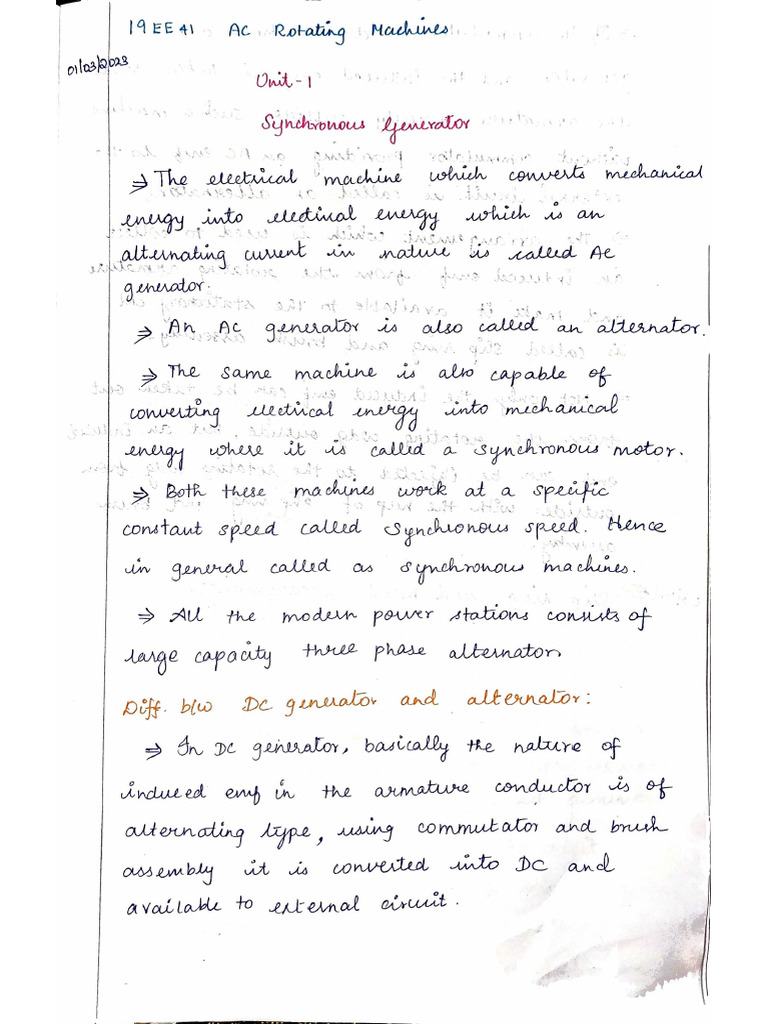 19EE41 AC Rotating Machines
01/03/2023
Unit-1
Synchronous Generator
⇒ The electrical machine which converts mechanical
energy into electrical energy which is an
alternating current in nature is called AC
generator.
⇒ An AC generator is also called an alternator.
⇒ The same machine is also capable of
converting electrical energy into mechanical
energy where it is called a synchronous motor.
⇒ Both these machines work at a specific
constant speed called synchronous speed. Hence
in general called as synchronous machines.
⇒ All the modern power stations consists of
large capacity three phase alternator.
Diff. b/w DC generator and alternator:
⇒ In DC generator, basically the nature of
induced emf in the armature conductor is of
alternating type, using commutator and brush
assembly it is converted into DC and
available to external circuit.